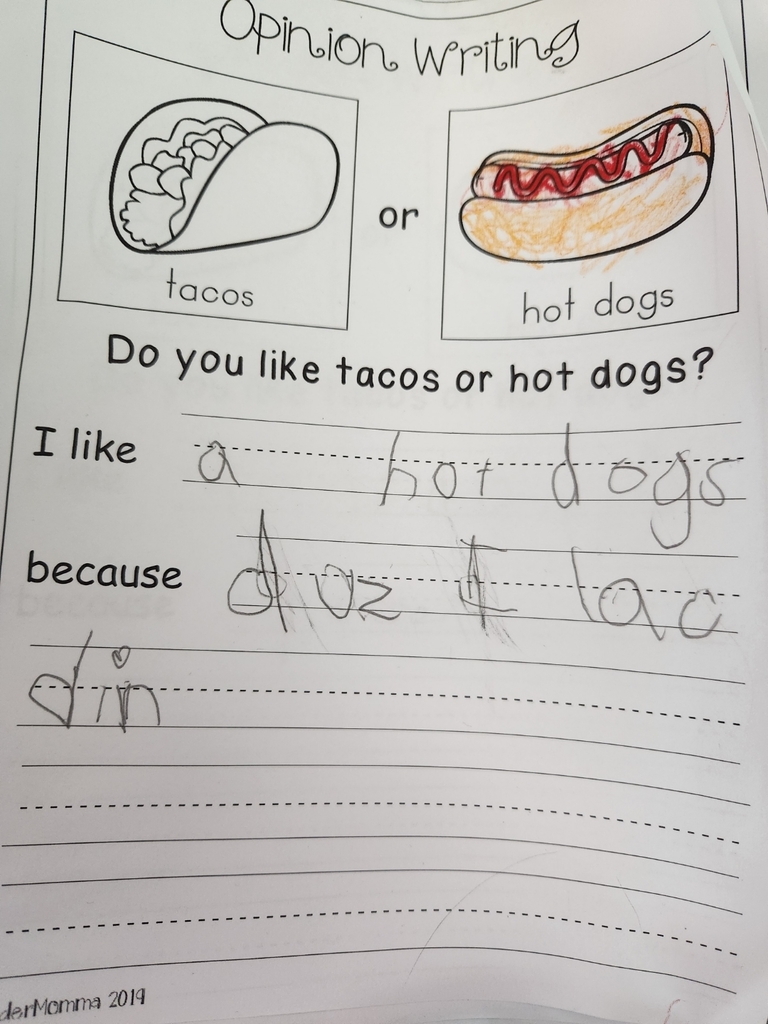 Opinion Writing
or
tacos
hot dogs
Do you like tacos or hot dogs?
I like a hot dogs
because duz t lac
din
derMomma 2019